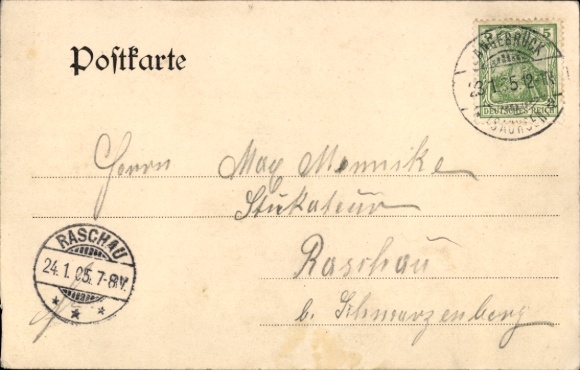 Postkarte
5
LANGEBRÜCK
23.1.05.12-1N.
DEUTSCHES REICH
Herrn Max Mennike
Stukateur
Raschau
b. Schwarzenberg
RASCHAU
24.1.05.7-8V.